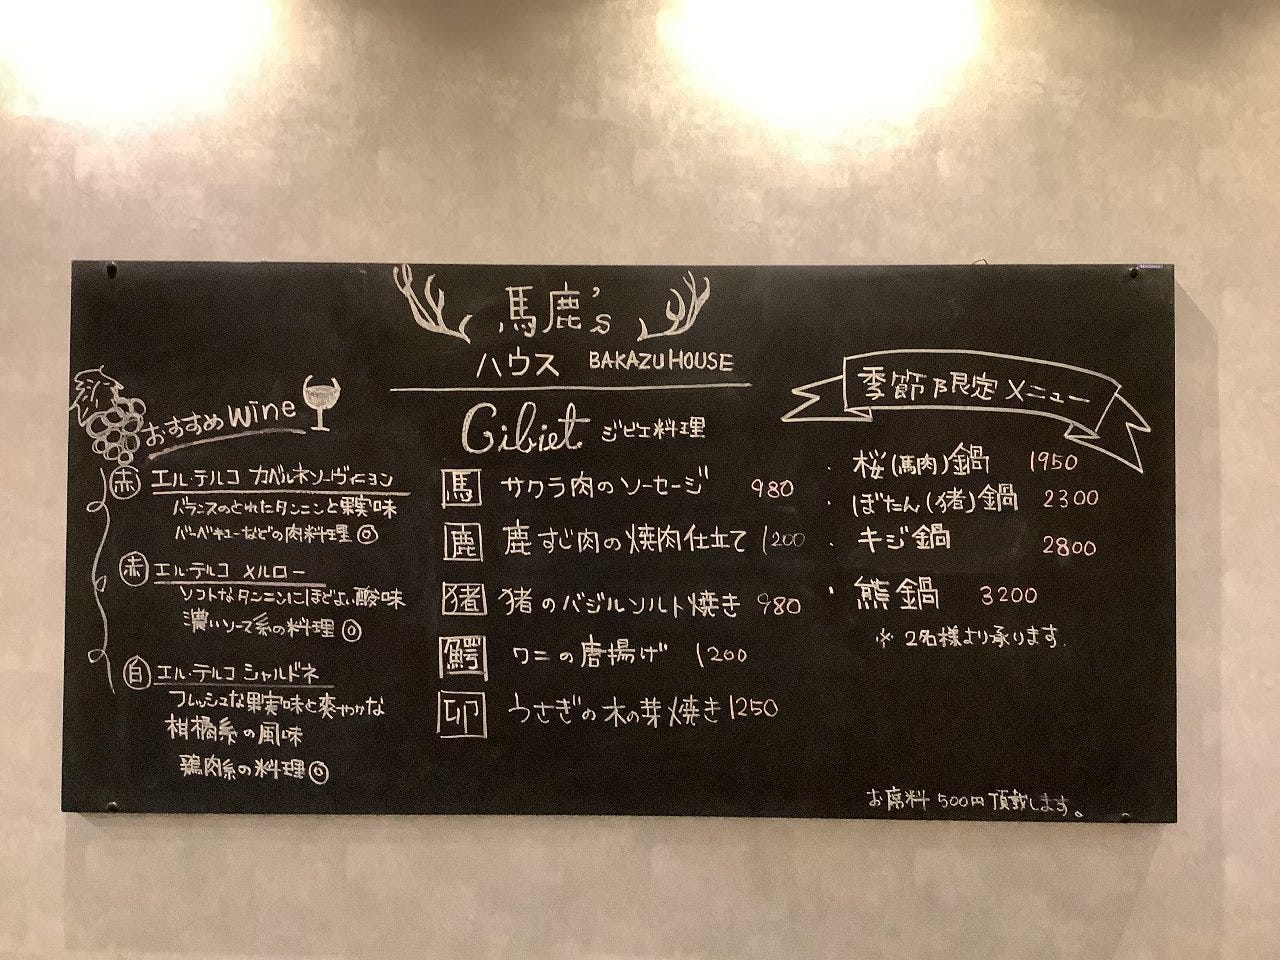 馬鹿's
ハウス BAKAZU HOUSE
おすすめ wine
赤 エル・テルコ カベルネソーヴィニョン
バランスのとれたタンニンと果実味
バーベキューなどの肉料理◎
赤 エル・テルコ メルロー
ソフトなタンニンにほどよい酸味
濃いソース系の料理◎
白 エル・テルコ シャルドネ
フレッシュな果実味と爽やかな
柑橘系の風味
鶏肉系の料理◎
Gibiet ジビエ料理
馬 サクラ肉のソーセージ 980
鹿 鹿すじ肉の焼肉仕立て 1200
猪 猪のバジルソルト焼き 980
鰐 ワニの唐揚げ 1200
卯 うさぎの木の芽焼き 1250
季節限定メニュー
・桜(馬肉)鍋 1950
・ぼたん(猪)鍋 2300
・キジ鍋 2800
・熊鍋 3200
※2名様より承ります.
お席料 500円頂戴します。